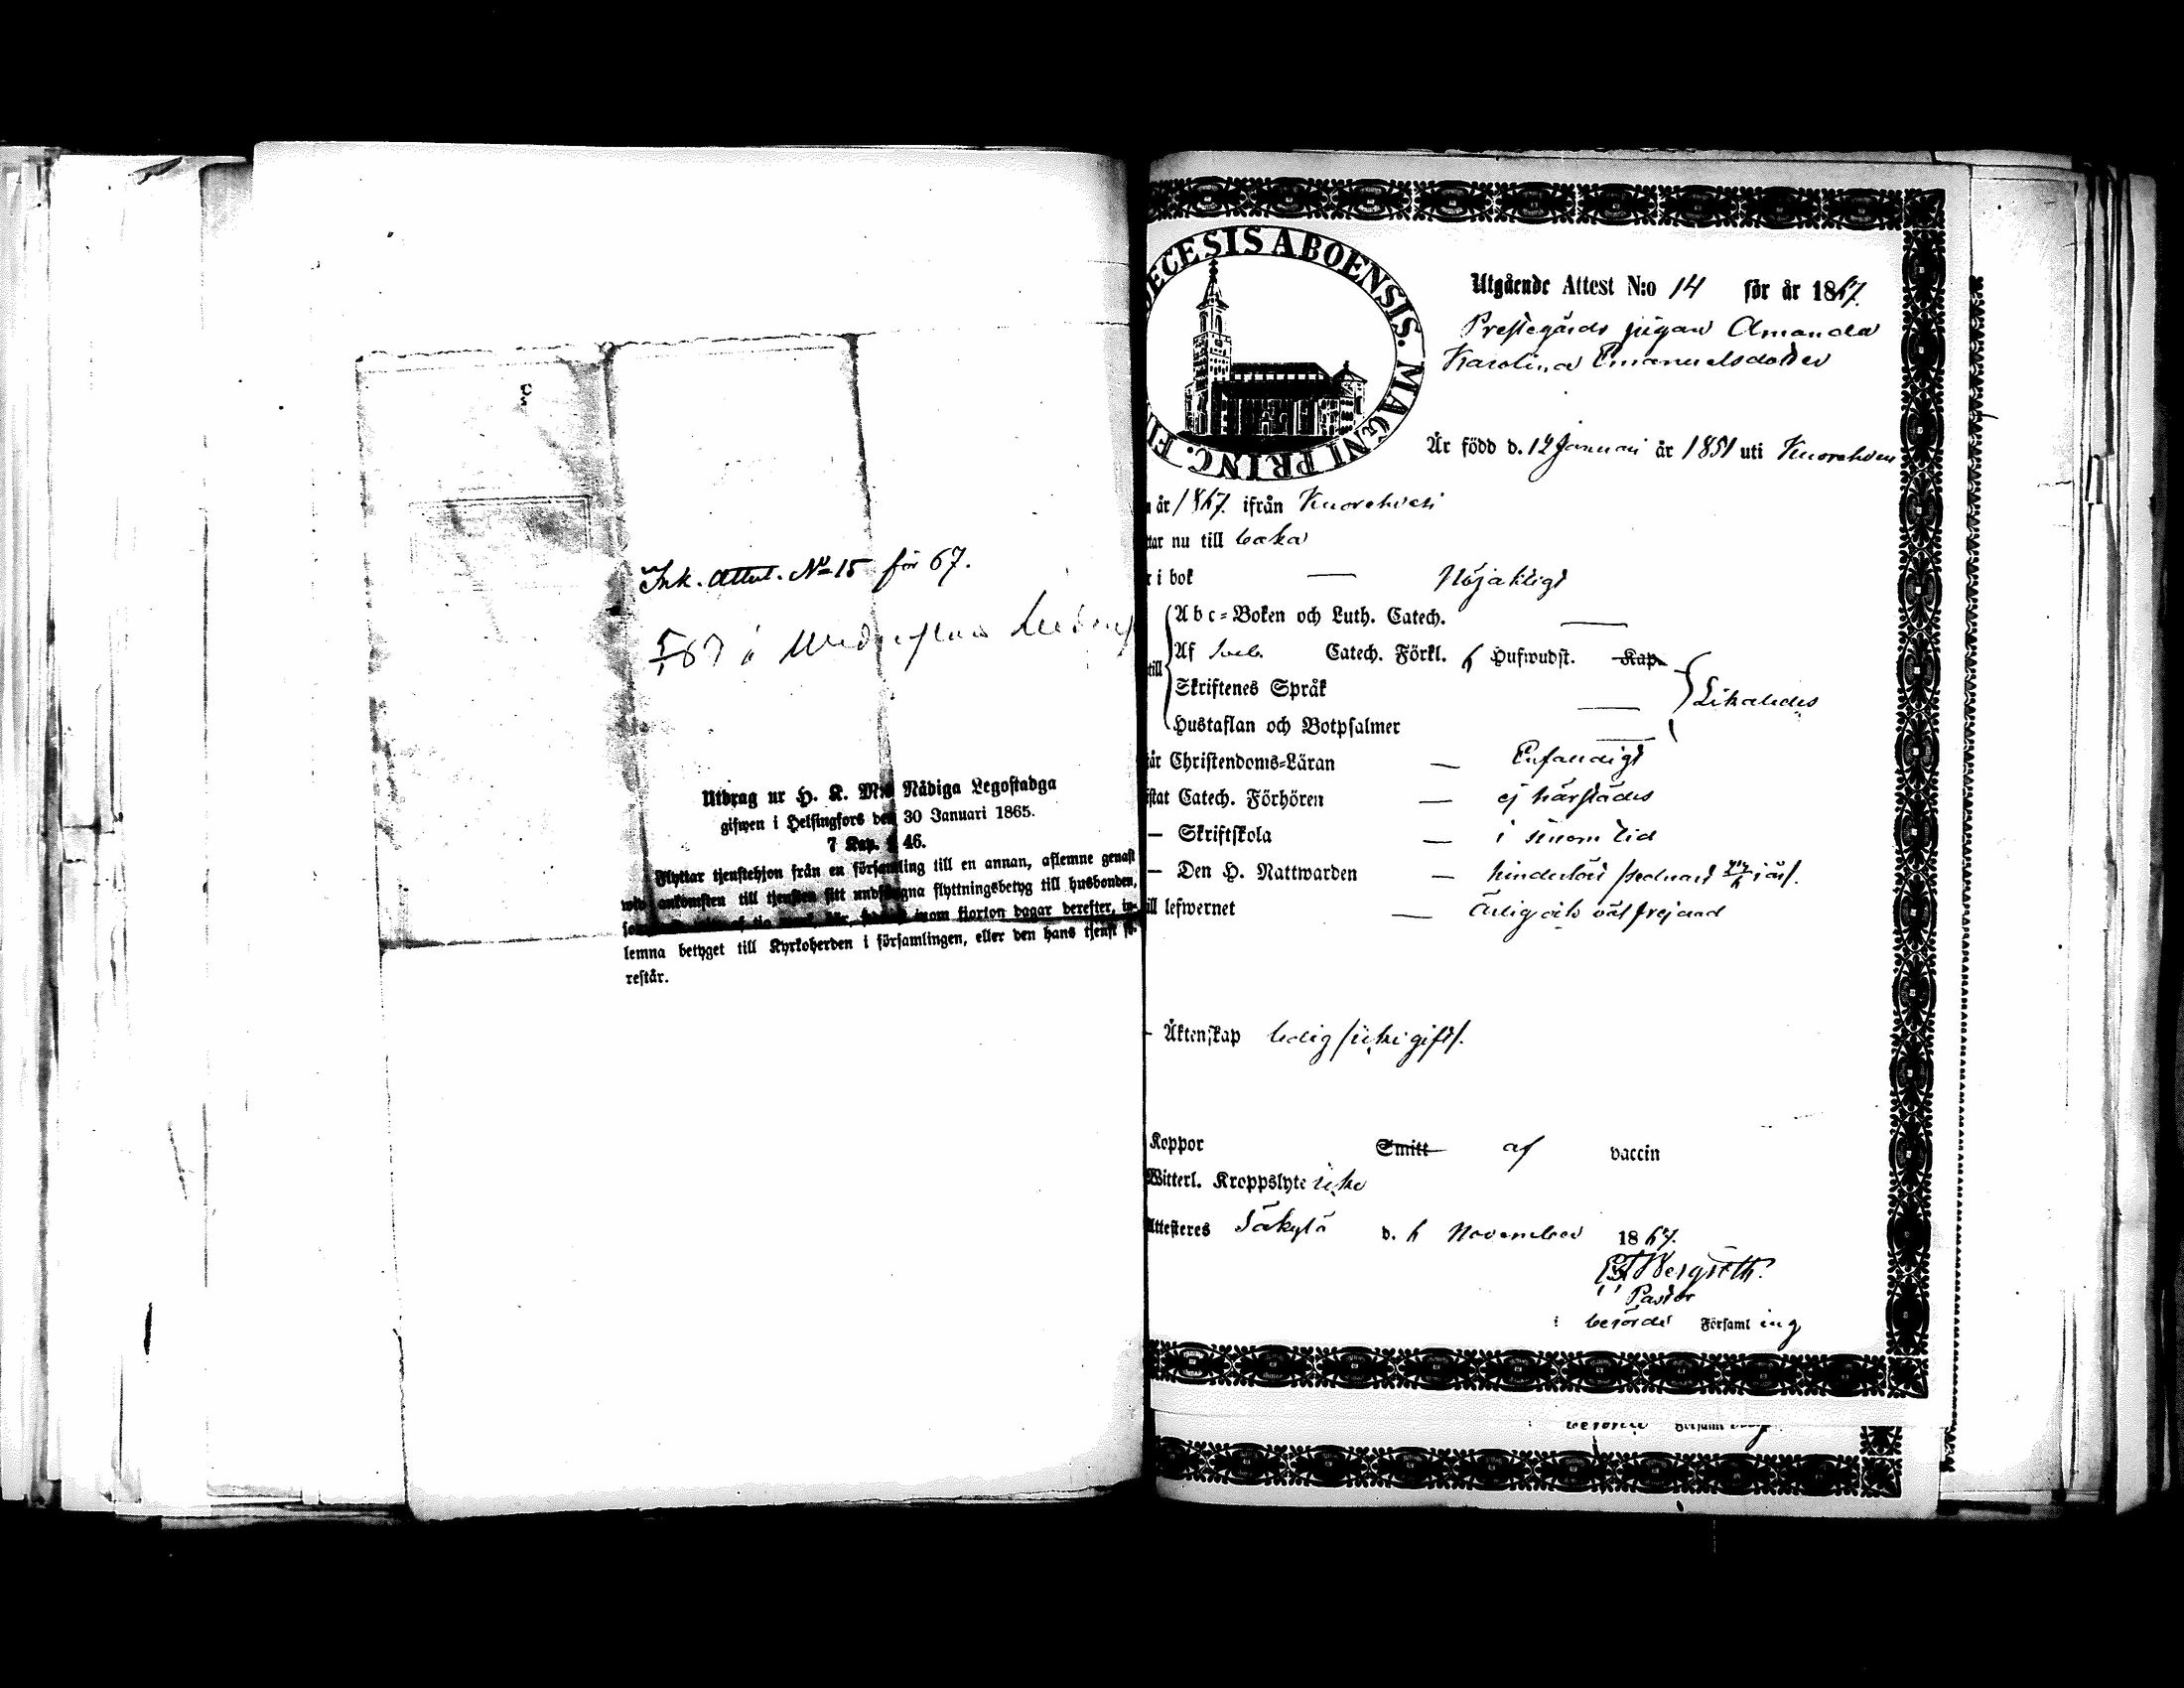 Ink. Attest. No 15 för 67.
Utdrag ur H. K. M:s Nådiga Legostadga
gifwen i Helsingfors den 30 Januari 1865.
7 Kap. § 46.
Flyttar tjenstehjon från en församling till en annan, aflemne genast
wid ankomsten till tjensten sitt undfångna flyttningsbetyg till husbonden,
inom fjorton dagar derefter, in-
lemna betyget till Kyrkoherden i församlingen, eller den hans tjenst fö-
restår.
ECESIS ABOENSIS. MAGNI PRINC. FI
Utgående Attest N:o 14 för år 1867.
Prestegårds pigan Amanda
Karolina Emanuelsdotter
Är född d. 12 Januari år 1851 uti
år 1867. ifrån
tar nu till
i bok — Nöjaktigt
Abc-Boken och Luth. Catech. —
till
Af Sveb. Catech. Förkl. 6 Hufwudst. Kap.
Skriftenes Språk — Likaledes
Hustaflan och Botpsalmer —
Christendoms-Läran — Enfaldigt
stat Catech. Förhören — ej härstädes
— Skriftskola — i sinom tid
— Den H. Nattwarden —
ill lefwernet — Ärlig och väl frejdad
- Äktenskap ledig /icke gift/.
Koppor Smitt af vaccin
Witterl. Kroppslyte icke
Attesteres Säkylä d. 6 November 1867.
Bergroth.
Pastor
i berörde Församl ing